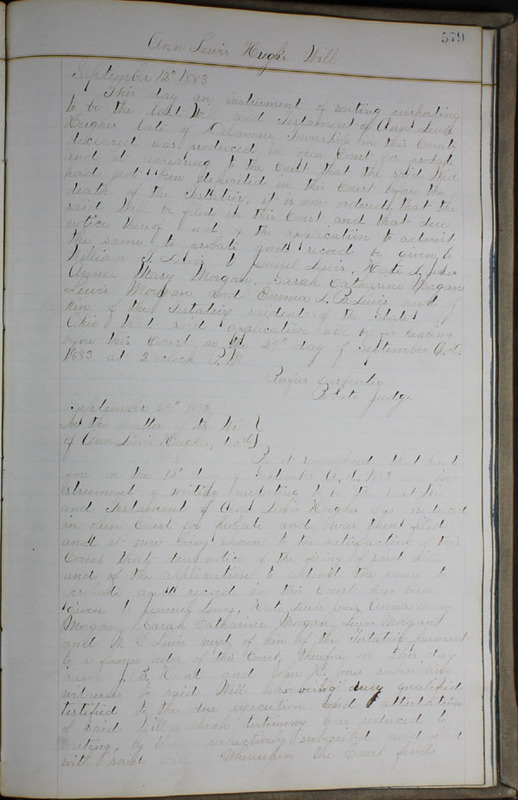 579
Ann Lewis Hughs Will
September 12" 1883
This day an instrument of writing purporting
to be the last Will and Testament of Ann Lewis
Hughes late of Delaware Township in this County
deceased was produced in open Court for probate
and it appearing to the Court that the said Will
had not been deposited in this Court before the
death of the Testatrix, it is now ordered that the
said Will be filed in this Court and that due
notice thereof and of the application to admit
the same to probate and record be given to
William Lewis, Lewis, Kate Lewis
Anna Mary Morgan, Sarah Catharine Morgan
Lewis Morgan and Emma Lewis next of
kin of the Testatrix resident of the State of
Ohio that said application will be for hearing
before this Court on the day of September A.D.
1883 at 2 o'clock P.M.
Rufus Carpenter
Probate Judge
September 1883
In the matter of the Will
of Ann Lewis Hughs,
Be it remembered that here
fore on the day of September A.D. 1883 an in-
strument of writing purporting to be the last Will
and Testament of Ann Lewis Hughes was produced
in open Court for probate and was then filed
and it now being proven to the satisfaction of this
Court that due notice of the filing of said Will
and of the application to admit the same to
probate and record in this Court has been
given to Lewis, Kate Lewis Anna Mary
Morgan, Sarah Catharine Morgan, Lewis Morgan
and Lewis next of kin of the Testatrix pursuant
to a former order of this Court, Therefore on this day
came and subscribing
witnesses to said Will who being duly qualified
testified to the due execution and attestation
of said Will, which testimony was reduced to
writing, by respectively subscribed and filed
with said Will. Whereupon the Court finds